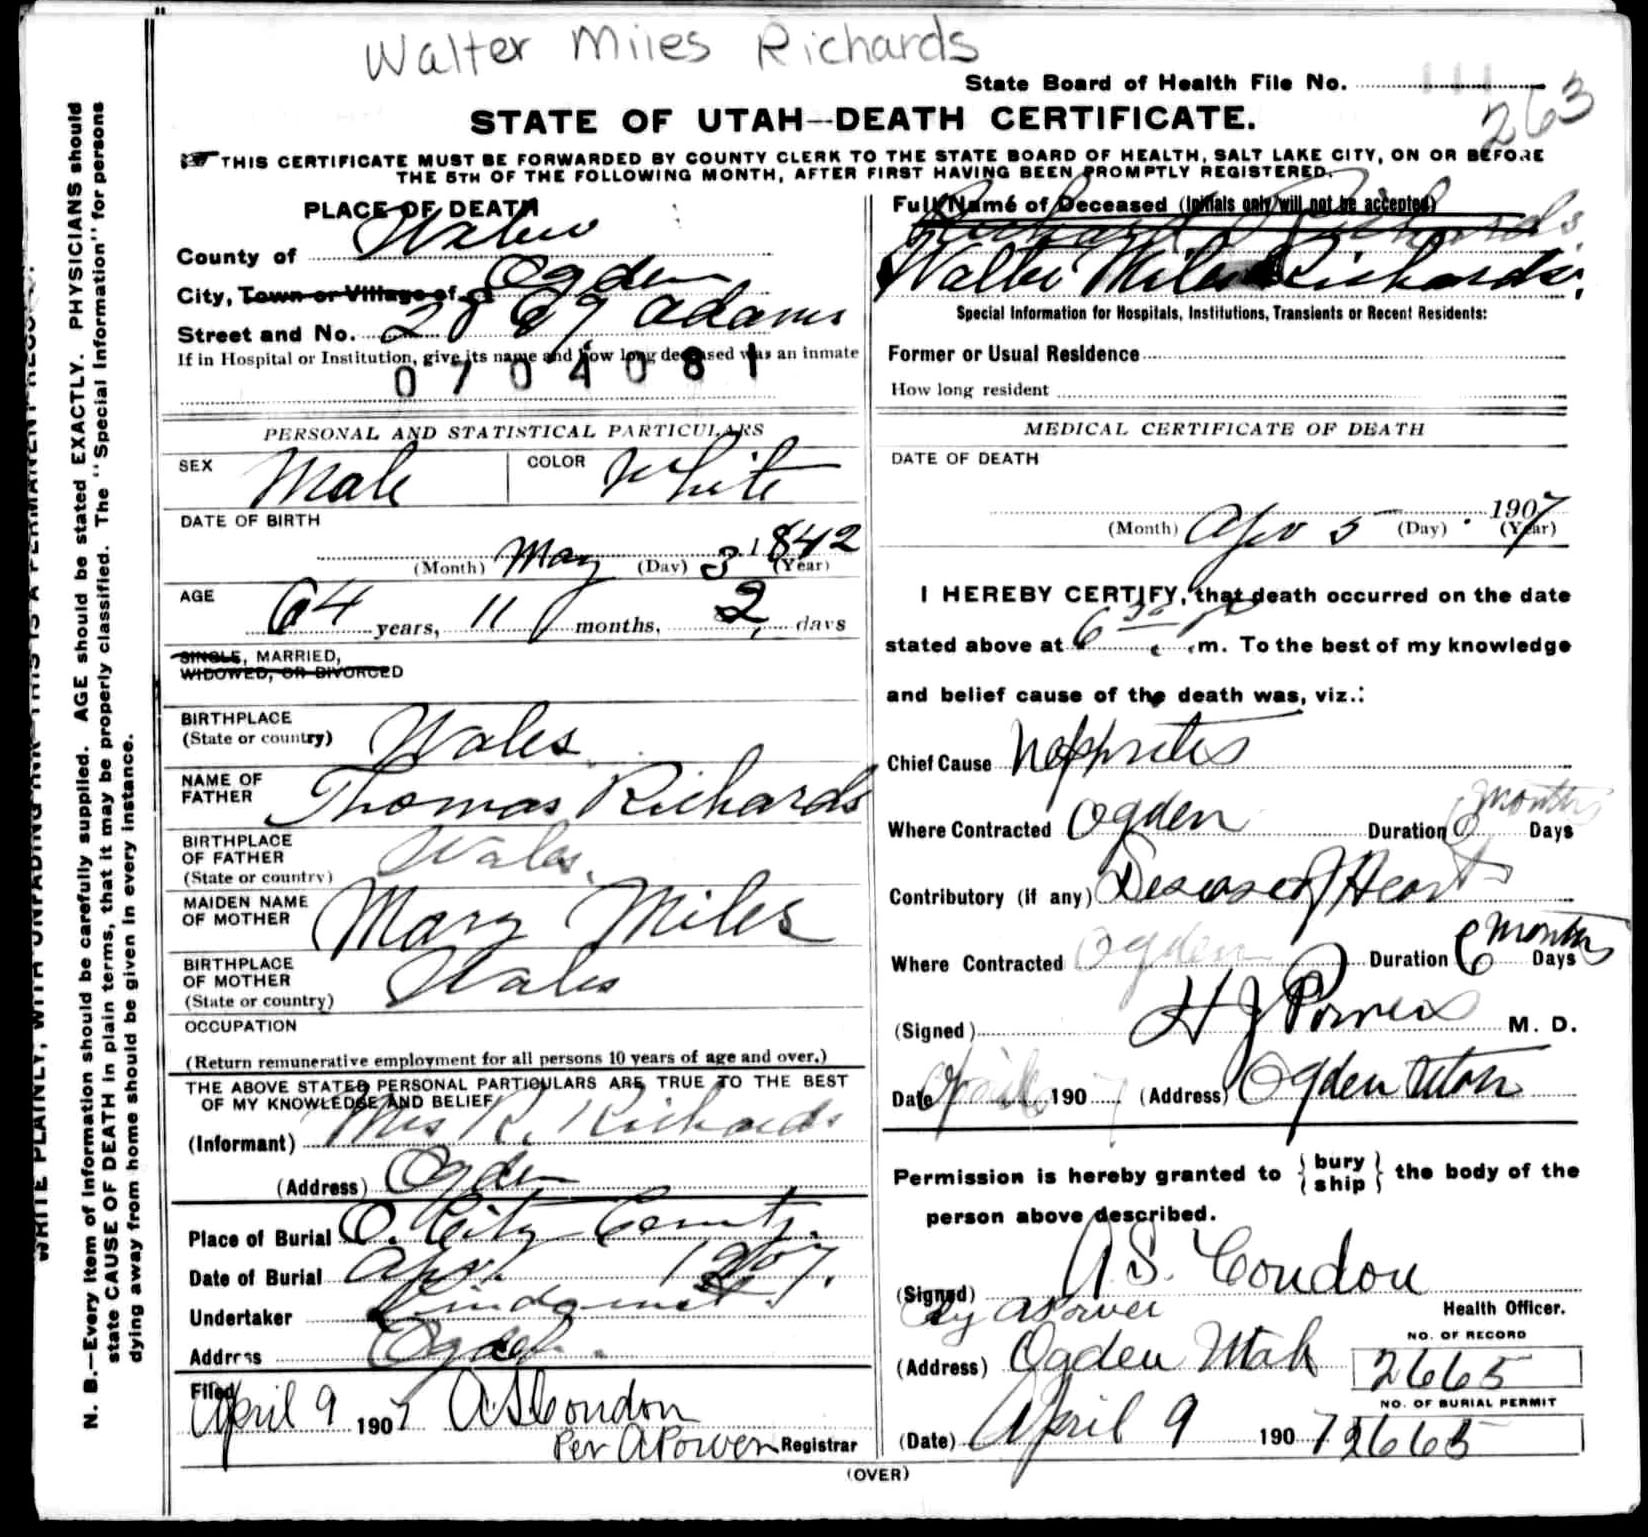 Walter Miles Richards
State Board of Health File No.
263
STATE OF UTAH--DEATH CERTIFICATE.
THIS CERTIFICATE MUST BE FORWARDED BY COUNTY CLERK TO THE STATE BOARD OF HEALTH, SALT LAKE CITY, ON OR BEFORE
THE 5TH OF THE FOLLOWING MONTH, AFTER FIRST HAVING BEEN PROMPTLY REGISTERED.
PLACE OF DEATH
County of Weber
City, Town or Village of Ogden
Street and No. Adams
If in Hospital or Institution, give its name and how long deceased was an inmate
0704081
PERSONAL AND STATISTICAL PARTICULARS
SEX Male COLOR White
DATE OF BIRTH
(Month) May (Day) 3 1842 (Year)
AGE
64 years, 11 months, 2 days
SINGLE, MARRIED,
WIDOWED, OR DIVORCED
BIRTHPLACE
(State or country) Wales
NAME OF
FATHER Thomas Richards
BIRTHPLACE
OF FATHER
(State or country) Wales.
MAIDEN NAME
OF MOTHER Mary Miles
BIRTHPLACE
OF MOTHER
(State or country) Wales
OCCUPATION
(Return remunerative employment for all persons 10 years of age and over.)
THE ABOVE STATED PERSONAL PARTICULARS ARE TRUE TO THE BEST
OF MY KNOWLEDGE AND BELIEF
(Informant) Mrs R. Richards
(Address) Ogden
Place of Burial O. City
Date of Burial Apr.
Undertaker Lindquist
Address Ogden
Filed April 9 1907 A S Condon
Per A Power Registrar
Full Name of Deceased (Initials only will not be accepted)
Richard Richards
Walter Miles Richards.
Special Information for Hospitals, Institutions, Transients or Recent Residents:
Former or Usual Residence
How long resident
MEDICAL CERTIFICATE OF DEATH
DATE OF DEATH
(Month) Apr 5 (Day) 1907 (Year)
I HEREBY CERTIFY, that death occurred on the date
stated above at 6 30 p.m. To the best of my knowledge
and belief cause of the death was, viz.:
Chief Cause Nephritis
Where Contracted Ogden Duration 6 months Days
Contributory (if any) Disease of Heart
Where Contracted Ogden Duration 6 months Days
(Signed) H J Powers M. D.
Date 190 (Address) Ogden Utah
Permission is hereby granted to {bury
ship} the body of the
person above described.
(Signed) A. S. Condon
By A Power Health Officer.
(Address) Ogden Utah
NO. OF RECORD
2665
NO. OF BURIAL PERMIT
(Date) April 9 1907 2665
(OVER)
N. B.—Every item of information should be carefully supplied. AGE should be stated EXACTLY. PHYSICIANS should
state CAUSE OF DEATH in plain terms, that it may be properly classified. The "Special Information" for persons
dying away from home should be given in every instance.
WRITE PLAINLY, WITH UNFADING INK—THIS IS A PERMANENT RECORD.